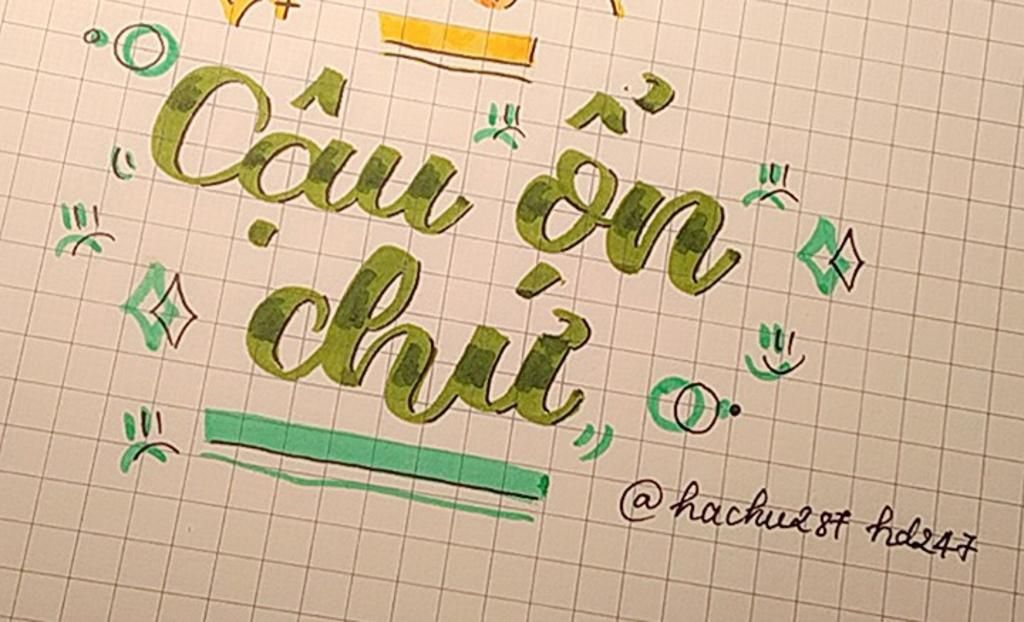 Cậu ổn
chứ
@hachu287 hd247